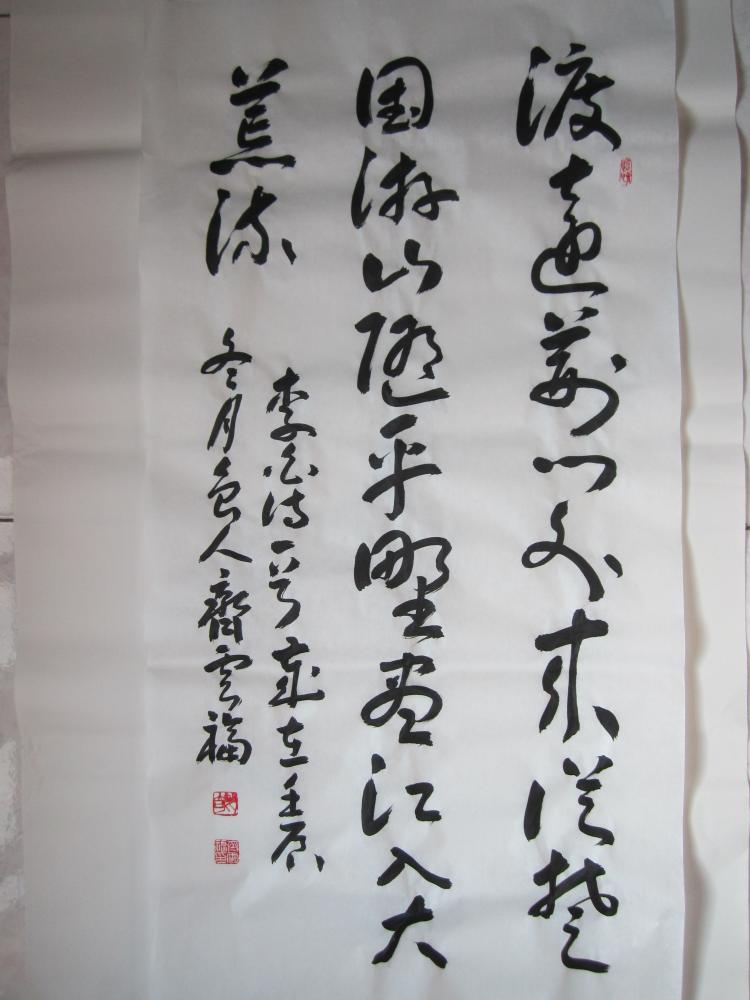 渡遠荆门外来從楚
国游山隨平野盡江入大
荒流
李白诗一首歲在壬辰
冬月鲁人齊雲福